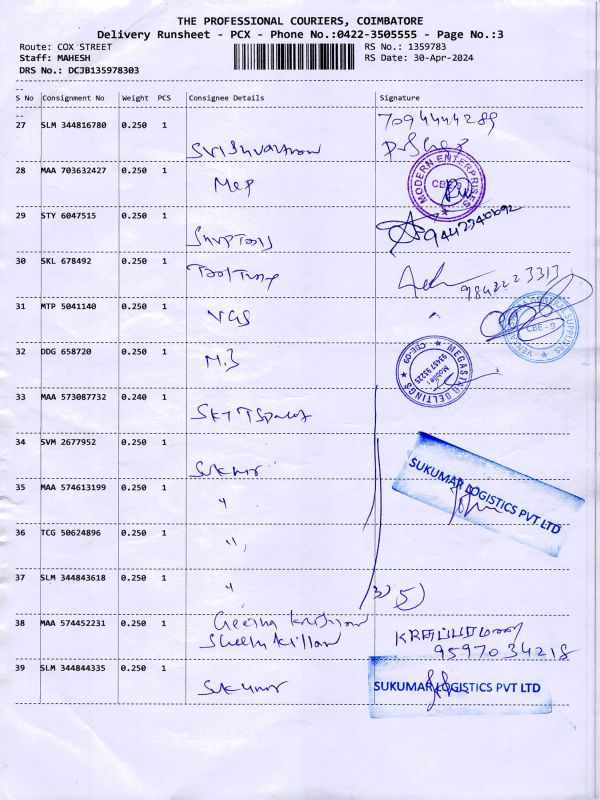 THE PROFESSIONAL COURIERS, COIMBATORE
Delivery Runsheet - PCX - Phone No.:0422-3505555 - Page No.:3
Route: COX STREET
RS No.: 1359783
Staff: MAHESH
RS Date: 30-Apr-2024
DRS No.: DCJB135978303
--
S No Consignment No Weight PCS Consignee Details Signature
--
27 SLM 344816780 0.250 1
7094444289
28 MAA 703632427 0.250 1
MODERN ENTERPRISES
CBE-9
29 STY 6047515 0.250 1
9442340692
30 SKL 678492 0.250 1
9842223313
31 MTP 5041140 0.250 1 VGS
CBE - 9
32 DDG 658720 0.250 1 M.3
MEGASTAR BELTINGS
CBE-09
Mobile:
93457 93225
33 MAA 573087732 0.240 1
34 SVM 2677952 0.250 1 Sukmr
SUKUMAR LOGISTICS PVT LTD
35 MAA 574613199 0.250 1 "
36 TCG 50624896 0.250 1 "
37 SLM 344843618 0.250 1 "
5)
38 MAA 574452231 0.250 1 Geetha Krishnan
9597034218
39 SLM 344844335 0.250 1 Sukumr
SUKUMAR LOGISTICS PVT LTD